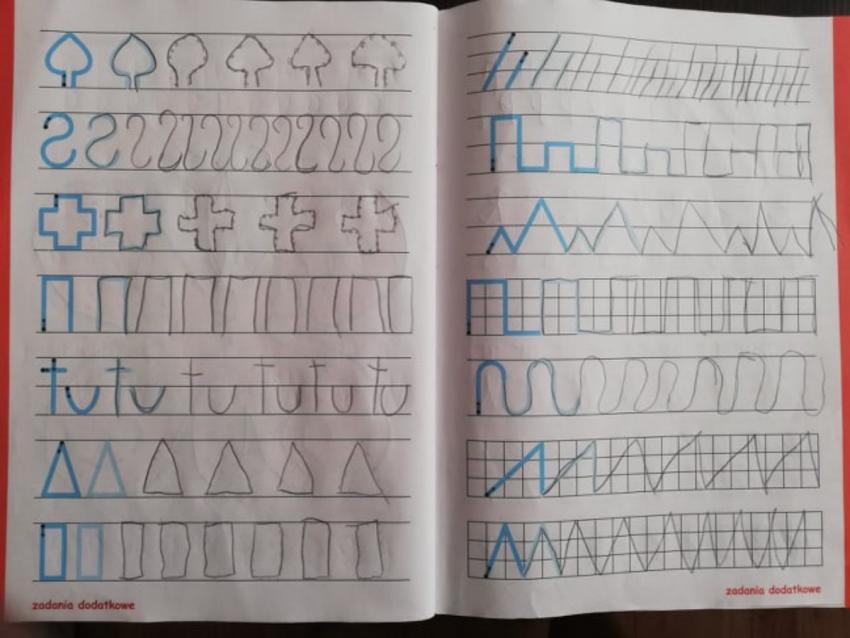 zadania dodatkowe
zadania dodatkowe